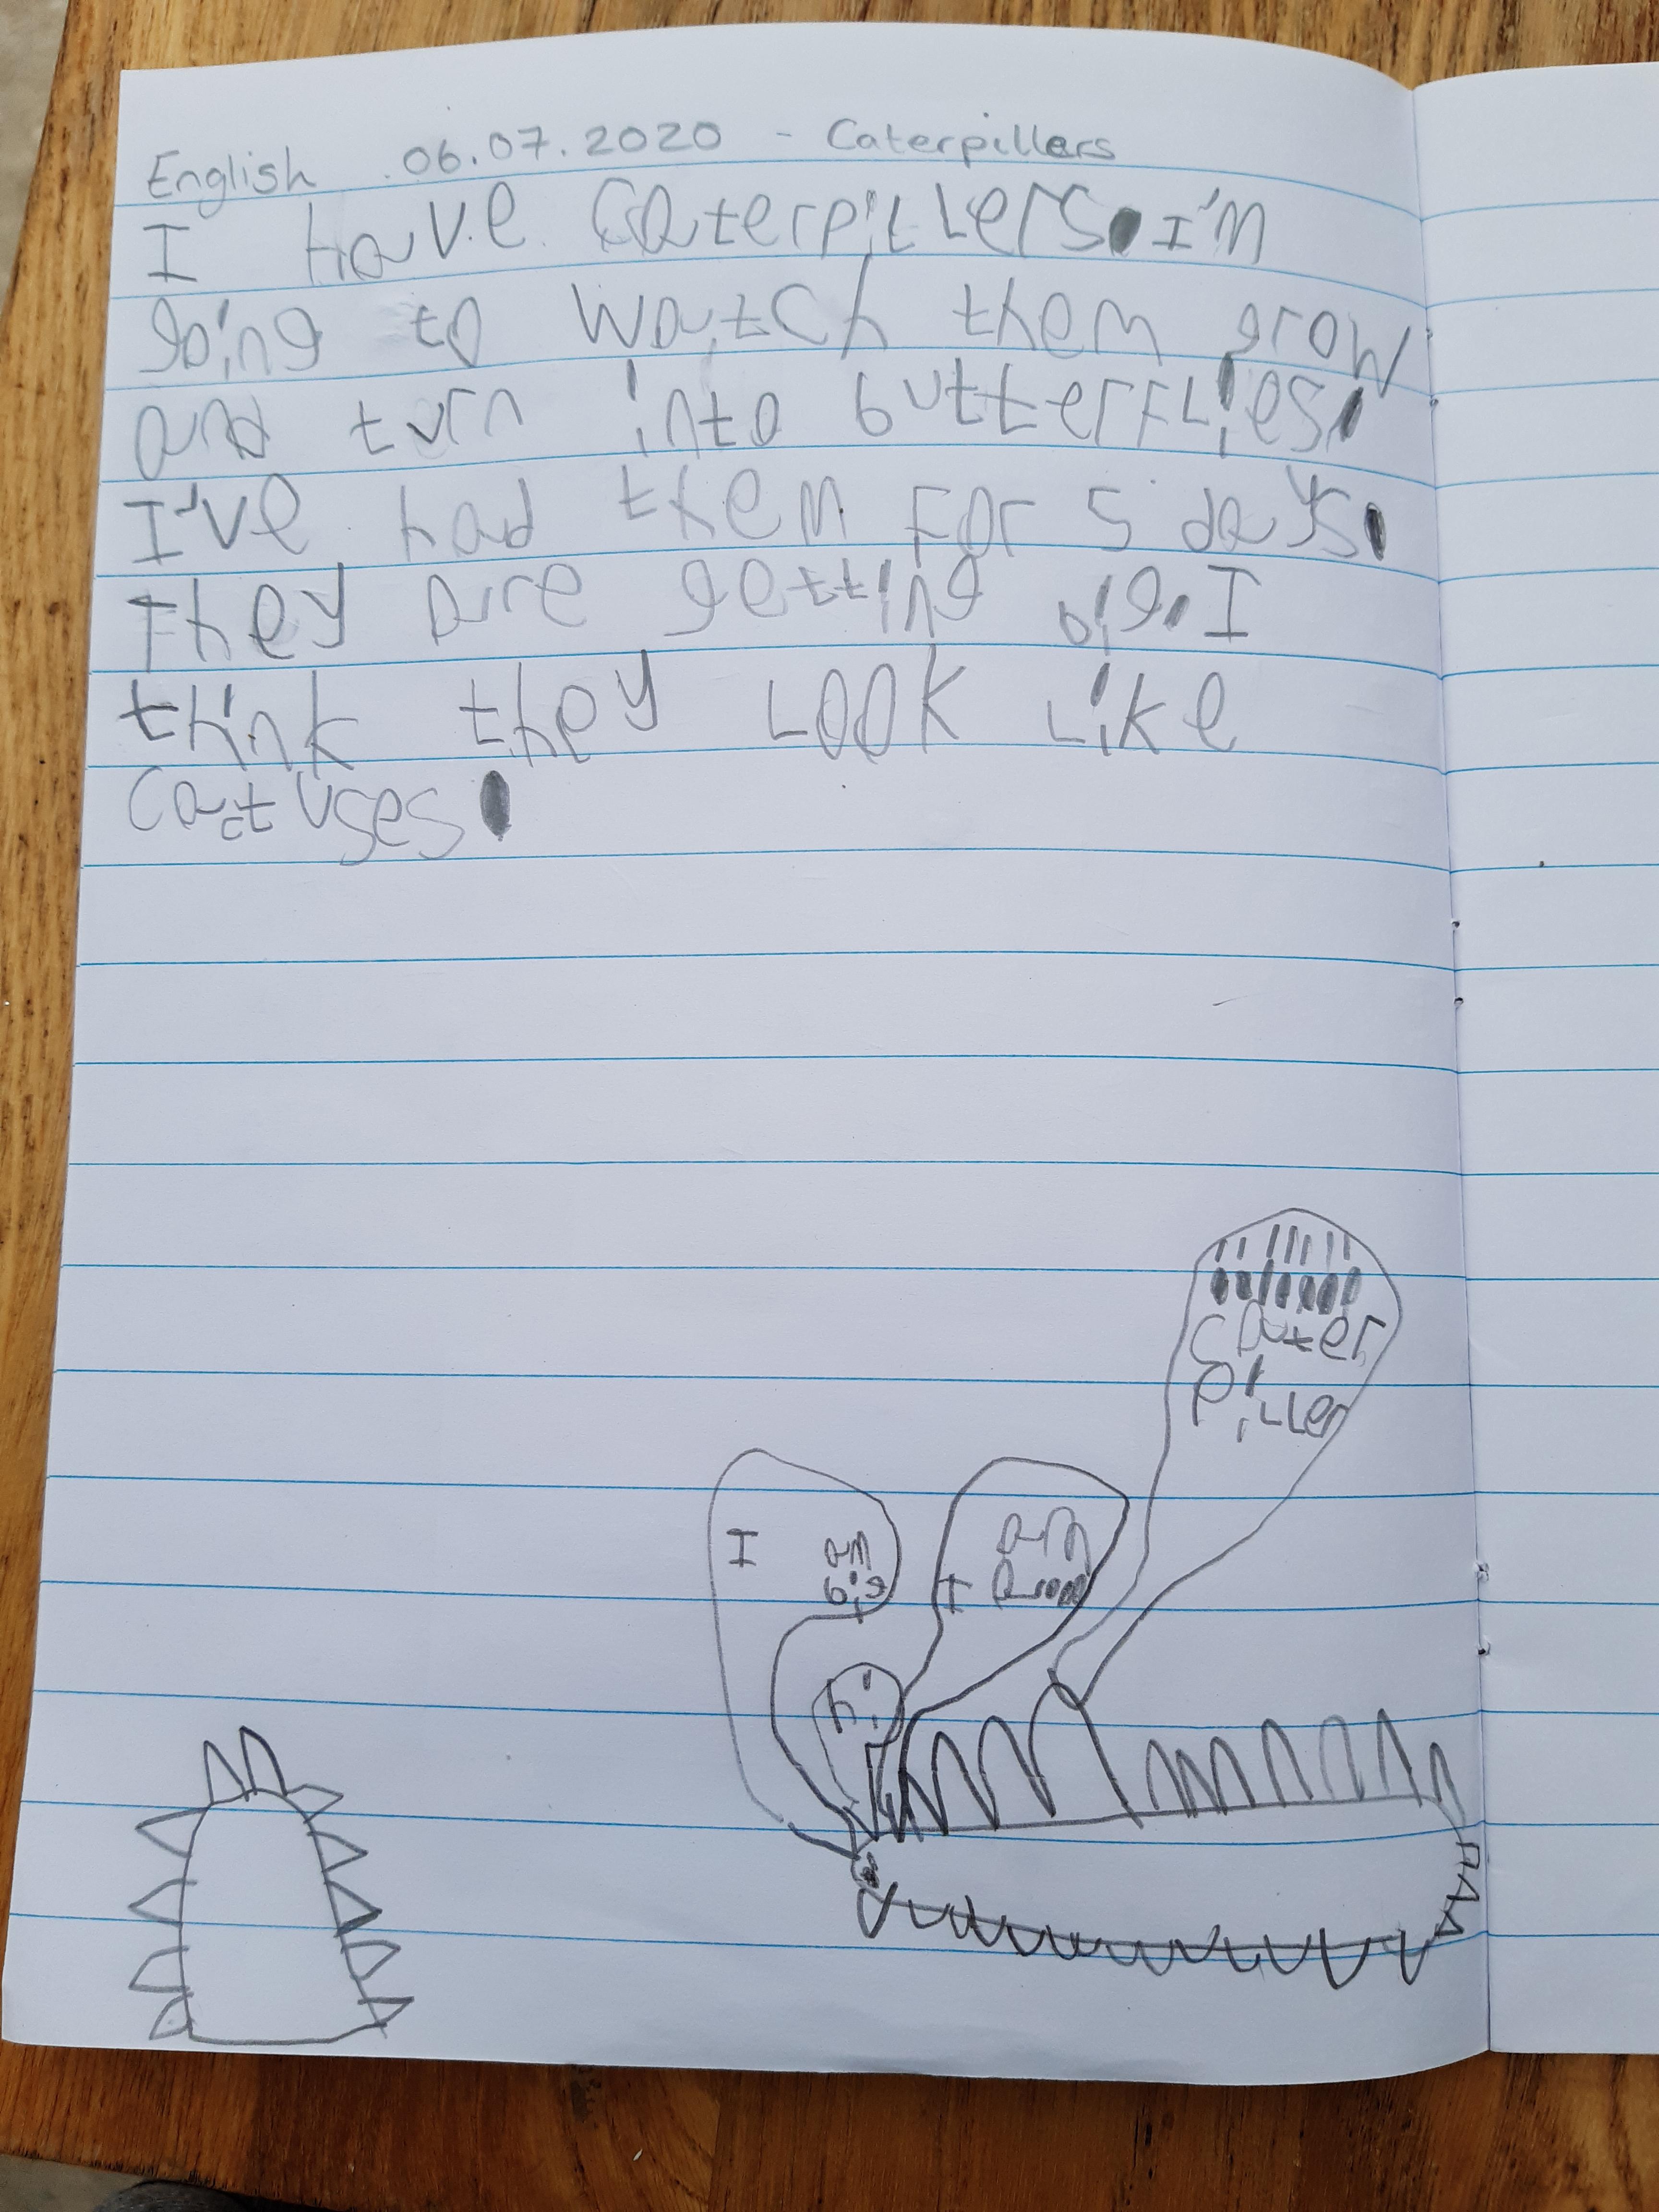 English 06.07.2020 - Caterpillers
I have caterpillers. I'm
going to watch them grow
and turn into butterflies.
I've had them for 5 days.
They are getting big. I
think they look like
cactuses.
Cater
piller
I am
big
I am
hi